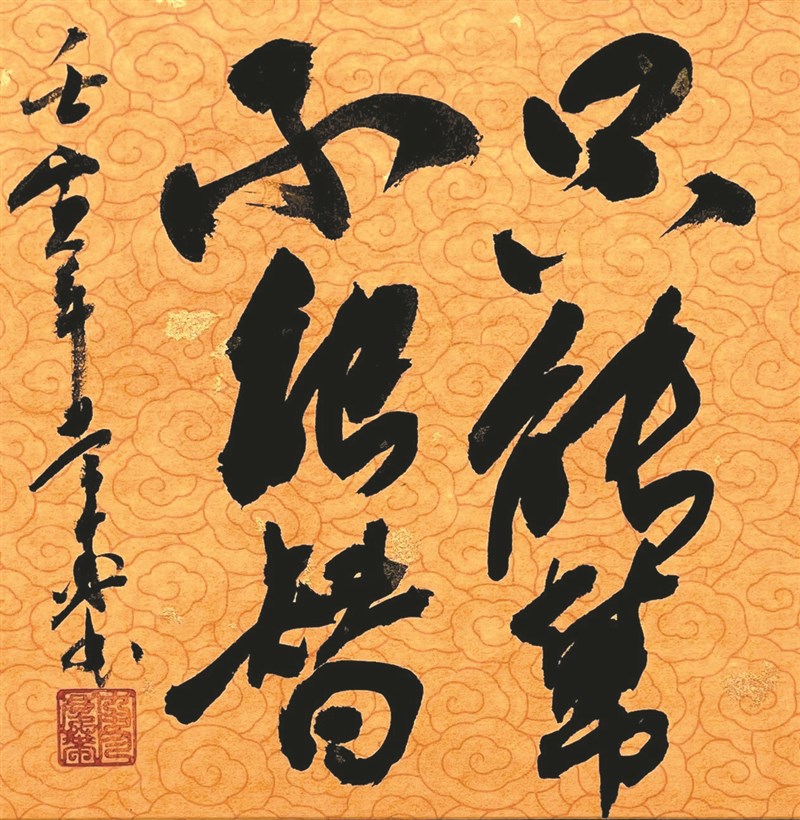 只能帮
不能替
壬寅年